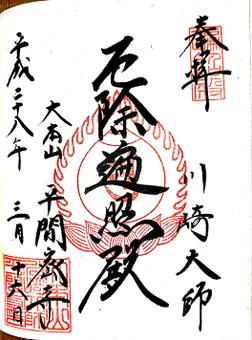 奉拝
川崎大師
厄除遍照殿
大本山
平間寺
平成二十八年
三月
十六日